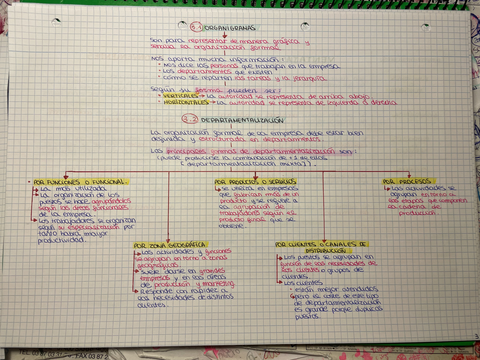 5.1 ORGANIGRAMAS
Son para representar de manera gráfica y
sencilla la organización formal.
Nos aporta mucha información:
• Nos dice las personas que trabajan en la empresa.
• Los departamentos que existen
• Cómo se reparten las tareas y la jerarquía.
Según su forma pueden ser:
• VERTICALES → La autoridad se representa de arriba abajo.
• HORIZONTALES → La autoridad se representa de izquierda a derecha
5.2 DEPARTAMENTALIZACIÓN
La organización formal de la empresa debe estar bien
definida y estructurada en departamentos.
Las principales formas de departamentalización son:
(puede producirse la combinación de +2 de ellas
(departamentalización mixta)).
POR FUNCIONES O FUNCIONAL.
La más utilizada.
La organización de los
puestos se hace agrupándolos
según las áreas funcionales
de la empresa.
Los trabajadores se organizan
según su especialización por
tanto habrá mayor
productividad.
POR ZONA GEOGRÁFICA
Las actividades y funciones
se agrupan en torno a zonas
geográficas.
Suele darse en grandes
empresas y en las áreas
de producción y marketing.
Responde con rapidez a
las necesidades de distintos
clientes.
POR PRODUCTO O SERVICIOS
Se utiliza en empresas
que fabrican más de un
producto y se refiere a
la agrupación de
trabajadores según el
producto final que se
obtiene.
POR CLIENTES O CANALES DE
DISTRIBUCIÓN
Los puestos se agrupan en
función de las necesidades de
los clientes o grupos de
clientes.
Los clientes
están mejor atendidos
pero el coste de este tipo
de departamentalización
es grande porque duplica
puestos.
POR PROCESOS
Las actividades se
agrupan en torno a
las etapas que componen
la cadena de
producción.
FAX 03 87 2